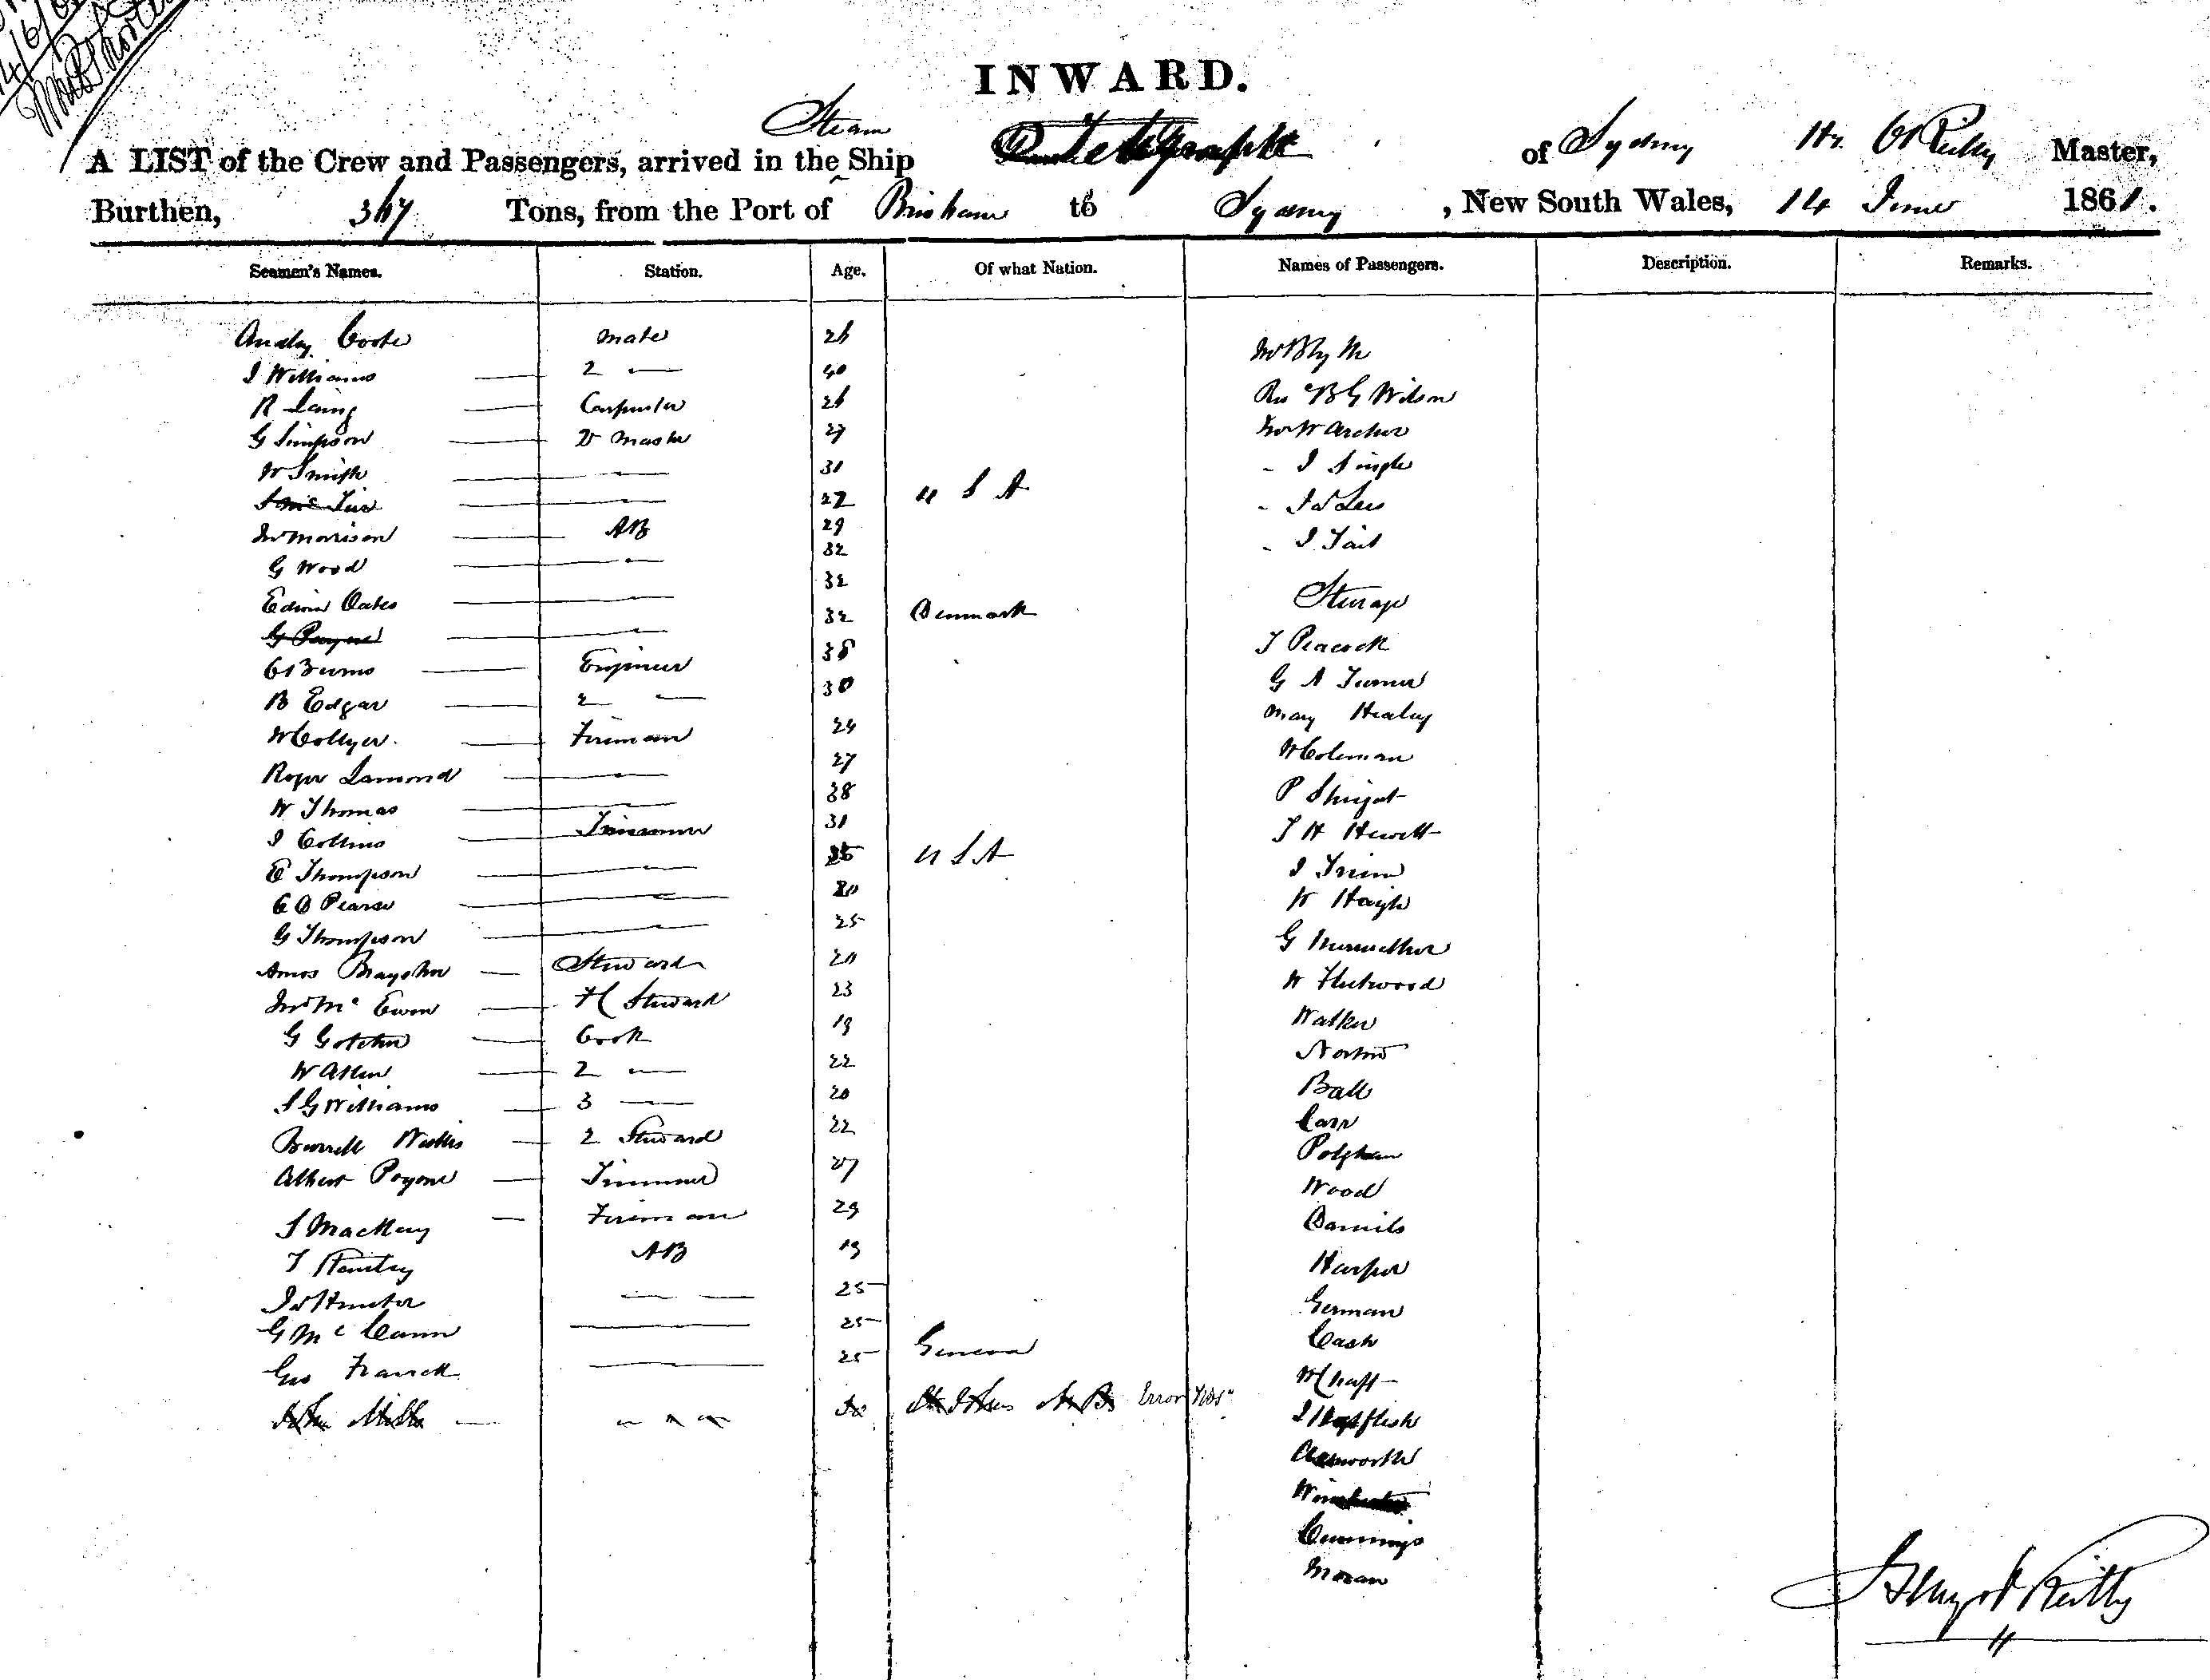 INWARD.
Steam
A LIST of the Crew and Passengers, arrived in the Ship Telegraph of Sydney Hy. O'Reilly Master,
Burthen, 367 Tons, from the Port of Brisbane to Sydney, New South Wales, 14 June 1861.
Seamen's Names. Station. Age. Of what Nation. Names of Passengers. Description. Remarks.
Coote Mate 26
J Williams 2 — 40
R Laing Carpenter 26
G Simpson Master 27
W Smith — 31
— 27 U S A
Jno Morison AB 29
G Wood — 32
Edwin Oates — 32
G Payne — 32 Denmark
C Burns Engineer 38
B Edgar 2 — 30
W Collyer. Fireman 24
Roger Lamond — 27
W Thomas — 38
J Collins Trimmer 31
E Thompson — U S A
C D Pearse — 20
G Thompson — 25
Amos Brayshaw Steward 20
Jno Mc Ewen Steward 23
G Gotcher Cook 19
W Allen 2 — 22
J G Williams 3 — 20
Burrell 2 Steward 22
Albert Payone Trimmer 27
J MacKay Fireman 29
T AB 19
Jas Hunter — 25
G Mc Cann — 25
Geo Franck — 25 Geneva
Mills — Error
Mr Blyth
Rev B G Wilson
Mr W Archer
" J Single
" J Lees
" J Tait
Steerage
T Peacock
G A Turner
Mary Healey
W Coleman
P
T H Hewett
J Trim
W Haigh
G Merewether
W Fleetwood
Walker
Norton
Ball
Carr
Wood
Daniels
Harper
German
Cash
Cummings
Moran
Henry O'Reilly